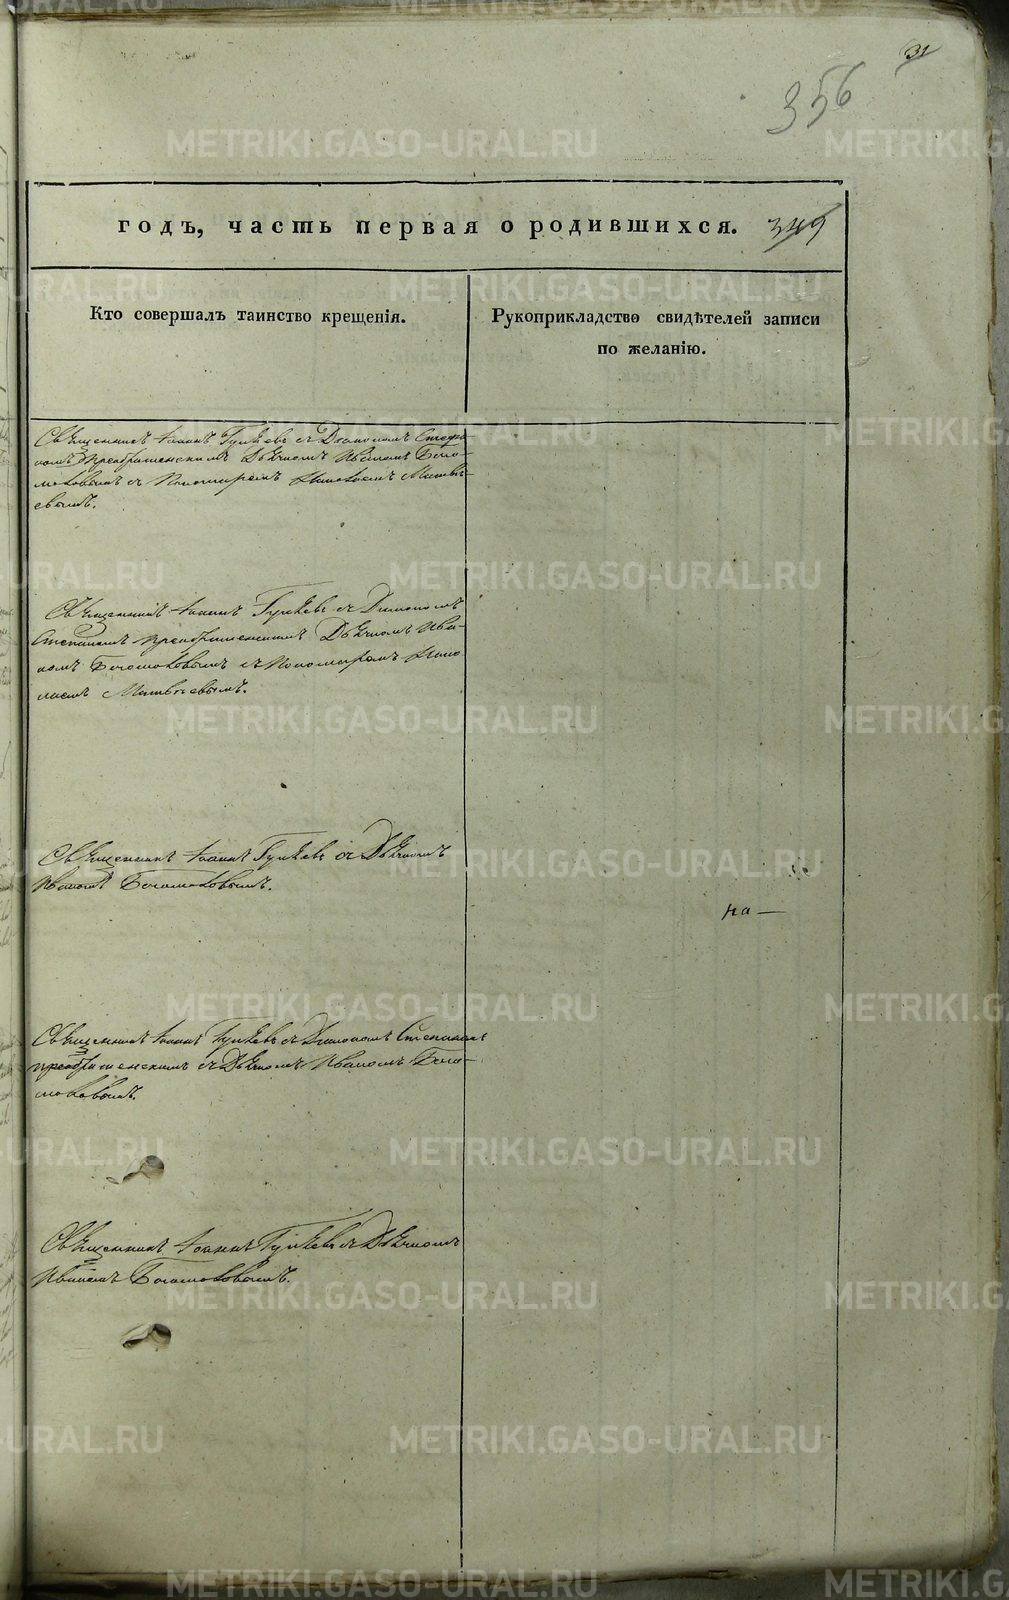 31
356
годъ, часть первая о родившихся. 349
Кто совершалъ таинство крещенія.
Рукоприкладство свидѣтелей записи
по желанію.
Священникъ Іоаннъ Гуляевъ съ Діакономъ Стефа-
номъ Преображенскимъ Дьячкомъ Иваномъ Бого-
моловымъ и Пономаремъ Николаемъ Матвѣ-
евымъ.
Священникъ Іоаннъ Гуляевъ съ Діакономъ
Стефаномъ Преображенскимъ Дьячкомъ Ива-
номъ Богомоловымъ и Пономаремъ Нико-
лаемъ Матвѣевымъ.
Священникъ Іоаннъ Гуляевъ съ Дьячкомъ
Иваномъ Богомоловымъ.
на
Священникъ Іоаннъ Гуляевъ съ Діакономъ Степаномъ
Преображенскимъ съ Дьячкомъ Иваномъ Бого-
моловымъ.
Священникъ Іоаннъ Гуляевъ съ Дьячкомъ
Иваномъ Богомоловымъ.
METRIKI.GASO-URAL.RU